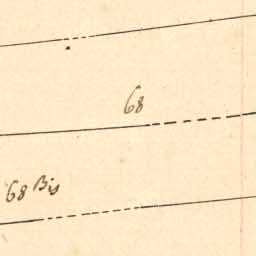 68
68 Bis